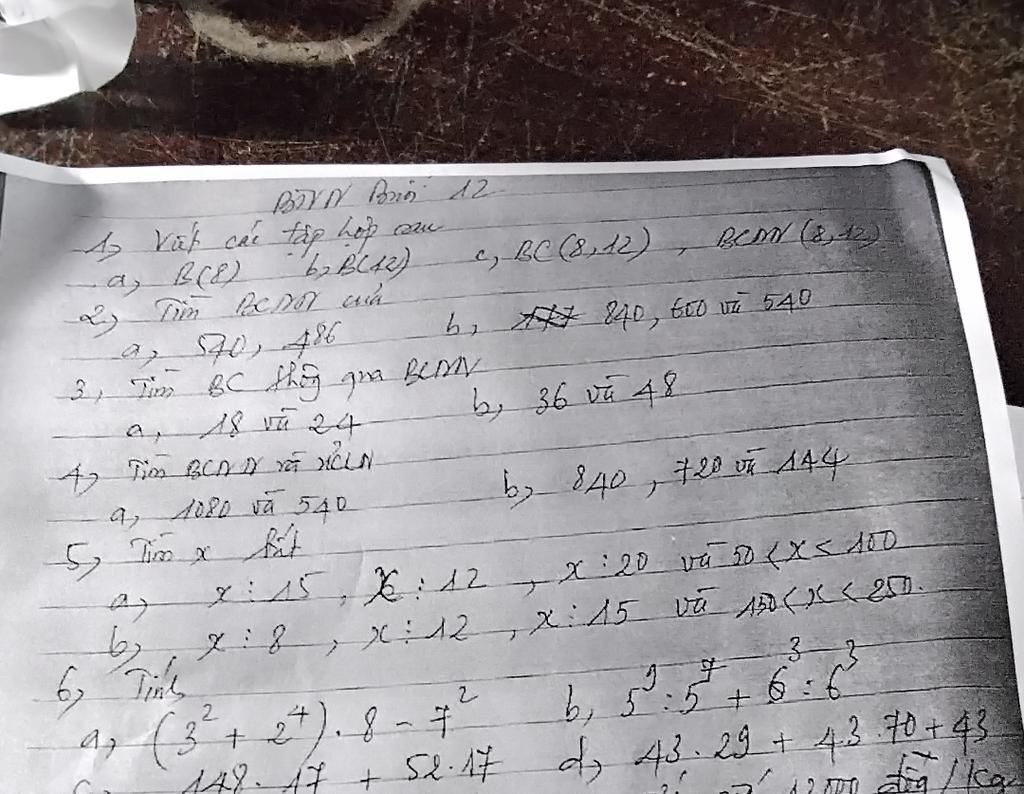 BTVN Buổi 12
1, Viết các tập hợp sau
a, B(8) b, B(12) c, BC(8,12) , BCNN(8,12)
2, Tìm BCNN của
a, 540, 486 b, 840, 600 và 540
3, Tìm BC thông qua BCNN
a, 18 và 24 b, 36 và 48
4, Tìm BCNN và ƯCLN
a, 1080 và 540 b, 840, 720 và 144
5, Tìm x biết
a, x ⋮ 15, x ⋮ 12, x ⋮ 20 và 50 < x < 100
b, x ⋮ 8, x ⋮ 12, x ⋮ 15 và 150 < x < 250.
6, Tính
a, (3² + 2⁴) . 8 - 7² b, 5⁹ : 5⁷ + 6³ : 6³
c, 148 . 17 + 52 . 17 d, 43 . 29 + 43 . 70 + 43
12000 đồng/kg